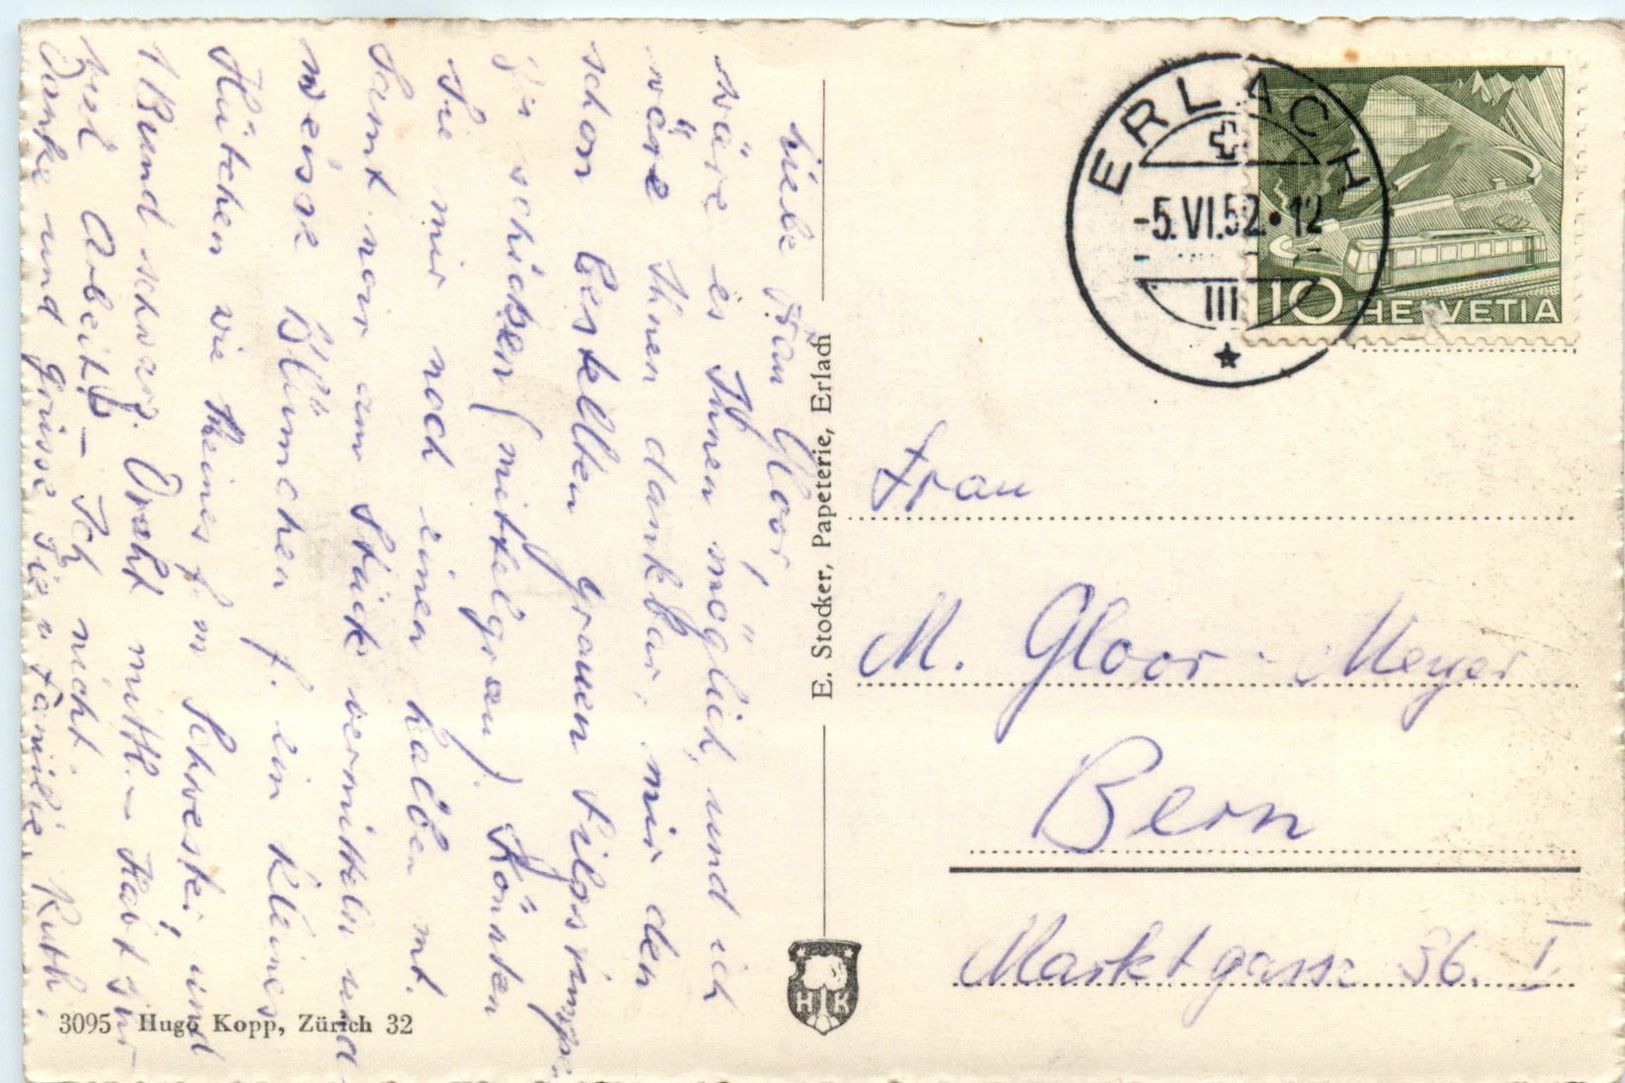 Liebe Frau Gloor,
wäre es Ihnen möglich, und ich
wäre Ihnen dankbar, mir den
schon bestellten grauen
zu schicken (mittelgrau). Könnten
Sie mir noch einen halben mt.
Samt noir am Stück vermitteln und
weisse Blümchen f. ein kleines
Hütchen wie meines f. m Schwester, und
1 Bund schwarz. Draht mittl. – Habt Ihr
viel Arbeit? – Ich nicht.
Danke und grüsse Sie u Familie, Ruth.
E. Stocker, Papeterie, Erlach
HK
3095 Hugo Kopp, Zürich 32
ERLACH
-5.VI.52.12
III
10 HELVETIA
Frau
M. Gloor-Meyer
Bern
Marktgasse 36. I.